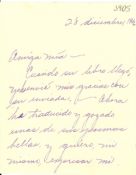 3905
28 diciembre, 196
Amiga mía —
Cuando su libro llegó,
gracias con
. Ahora
ha traducido y gozado
unas de sus poesías
bellas y quiero, mi
misma, expresar mi